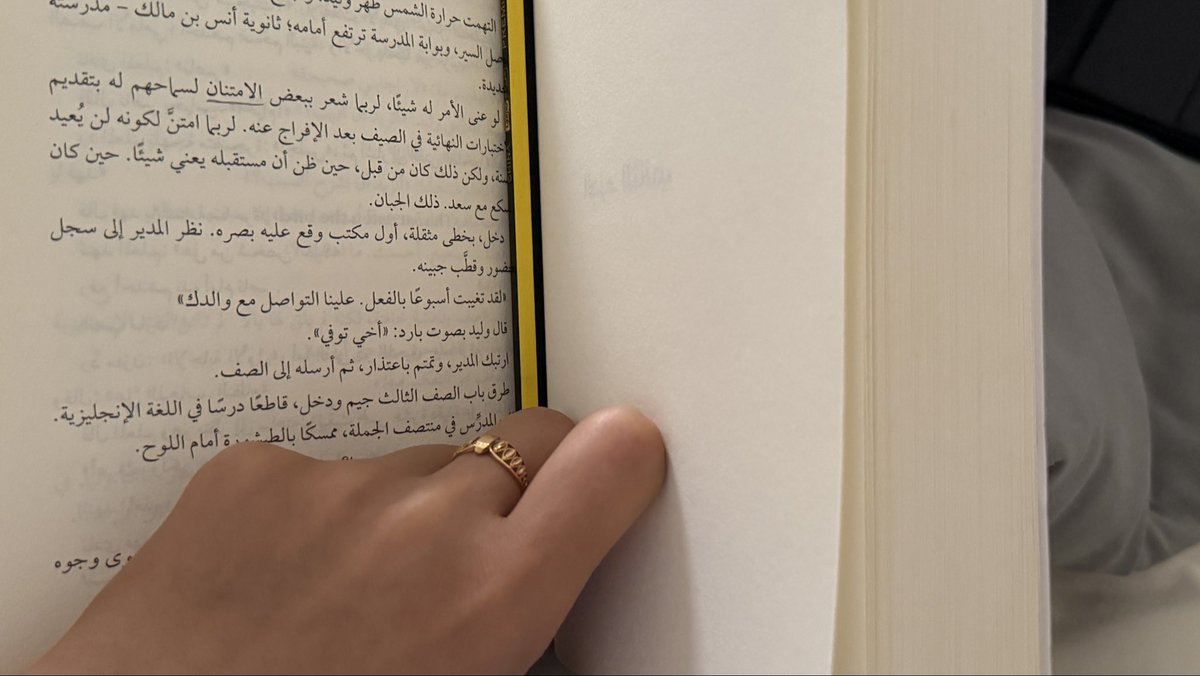 التهمت حرارة الشمس ظهر
السير، وبوابة المدرسة ترتفع أمامه؛ ثانوية أنس بن مالك – مدرسته
لو عنى الأمر له شيئًا، لربما شعر ببعض الامتنان لسماحهم له بتقديم
النهائية في الصيف بعد الإفراج عنه. لربما امتنَّ لكونه لن يُعيد
ولكن ذلك كان من قبل، حين ظن أن مستقبله يعني شيئًا. حين كان
مع سعد. ذلك الجبان.
دخل، بخطى مثقلة، أول مكتب وقع عليه بصره. نظر المدير إلى سجل
وقطَّب جبينه.
«لقد تغيبت أسبوعًا بالفعل. علينا التواصل مع والدك»
قال وليد بصوت بارد: «أخي توفي».
ارتبك المدير، وتمتم باعتذار، ثم أرسله إلى الصف.
طرق باب الصف الثالث جيم ودخل، قاطعًا درسًا في اللغة الإنجليزية.
المدرِّس في منتصف الجملة، ممسكًا بالطبشورة أمام اللوح.
وجوه